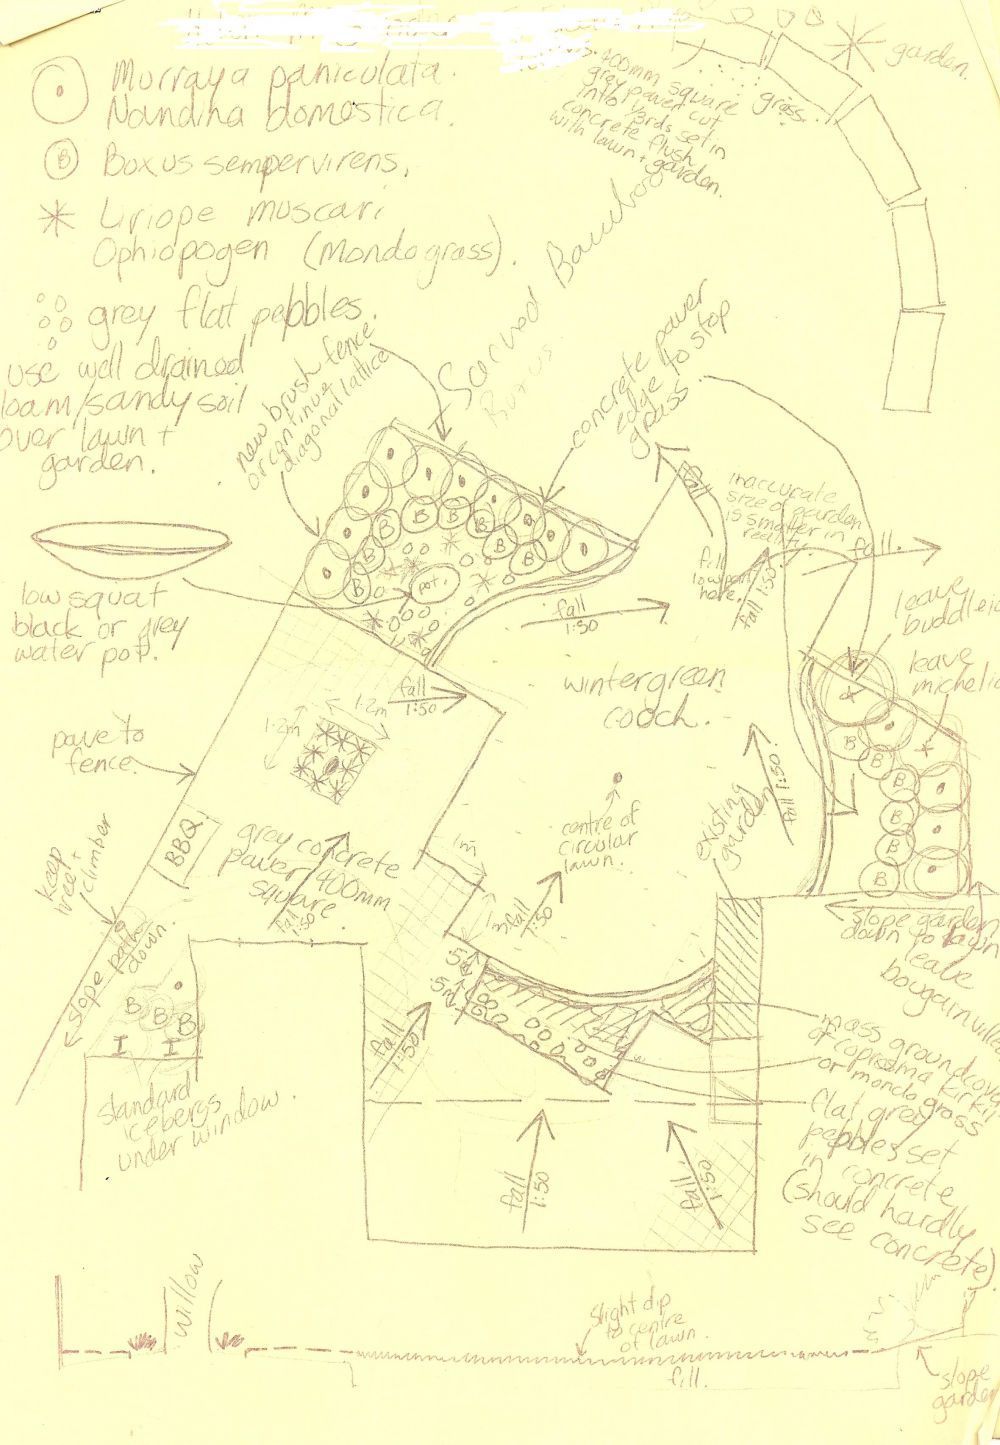 Murraya paniculata.
Nandina domestica.
B Boxus sempervirens.
Liriope muscari
Ophiopogen (Mondograss).
grey flat pebbles.
use well drained
loam/sandy soil
over lawn +
garden.
400mm square
grey paver cut
into 1/3rds set in
concrete flush
with lawn + garden.
grass.
garden.
Sacred Bamboo
Buxus
new brush fence
or continue
diagonal lattice
concrete paver
edge to stop
grass.
fall
inaccurate
size of garden
is smaller in
reality.
fill
low point
here.
fall 1:50
fall.
low squat
black or grey
water pot.
B
B
B
B
B
B
B
B
pot.
fall
1:50
leave
buddleia
leave
michelia
fall
1:50
wintergreen
cooch.
1.2m
1.2m
pave to
fence.
BBQ
grey concrete
paver 400mm
square
fall
1:50
keep
tree +
climber
centre of
circular
lawn.
existing
garden
fall 1:50
B
B
B
B
B
B
1m
1m
fall
1:50
slope garden
down to lawn
leave
bougainvillea
slope path
down.
B
B
B
I
I
standard
icebergs
under window.
.5m
.5m
fall
1:50
mass groundcover
of coprosma kirkii
or mondo grass
flat grey
pebbles set
in concrete
(should hardly
see concrete)
fall
1:50
fall
1:50
willow
slight dip
to centre
of lawn.
fill.
slope
garden